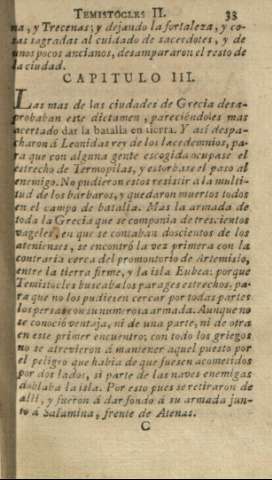 TEMISTOCLES II. 33
na, y Trecenas; y dejando la fortaleza, y co-
sas sagradas al cuidado de sacerdotes, y de
unos pocos ancianos, desampararon el resto de
la ciudad.
CAPITULO III.
Las mas de las ciudades de Grecia desa-
probaban este dictamen, pareciéndoles mas
acertado dar la batalla en tierra. Y así despa-
charon á Leonidas rey de los lacedemnios, pa-
ra que con alguna gente escogida ocupase el
estrecho de Termopilas, y estorbase el paso al
enemigo. No pudieron estos resistir á la multi-
tud de los bárbaros, y quedaron muertos todos
en el campo de batalla. Mas la armada de
toda la Grecia que se componia de trescientos
vageles, en que se contaban doscientos de los
atenienses, se encontró la vez primera con la
contraria cerca del promontorio de Artemisio,
entre la tierra firme, y la isla Eubea: porque
Temistocles buscaba los parages estrechos, pa-
ra que no los pudiesen cercar por todas partes
los persas con su numerosa armada. Aunque no
se conoció ventaja, ni de una parte, ni de otra
en este primer encuentro; con todo los griegos
no se atrevieron á mantener aquel puesto por
el peligro que habia de que fuesen acometidos
por dos lados, si parte de las naves enemigas
doblaba la isla. Por esto pues se retiraron de
alli, y fueron á dar fondo á su armada jun-
to á Salamina, frente de Atenas.
C